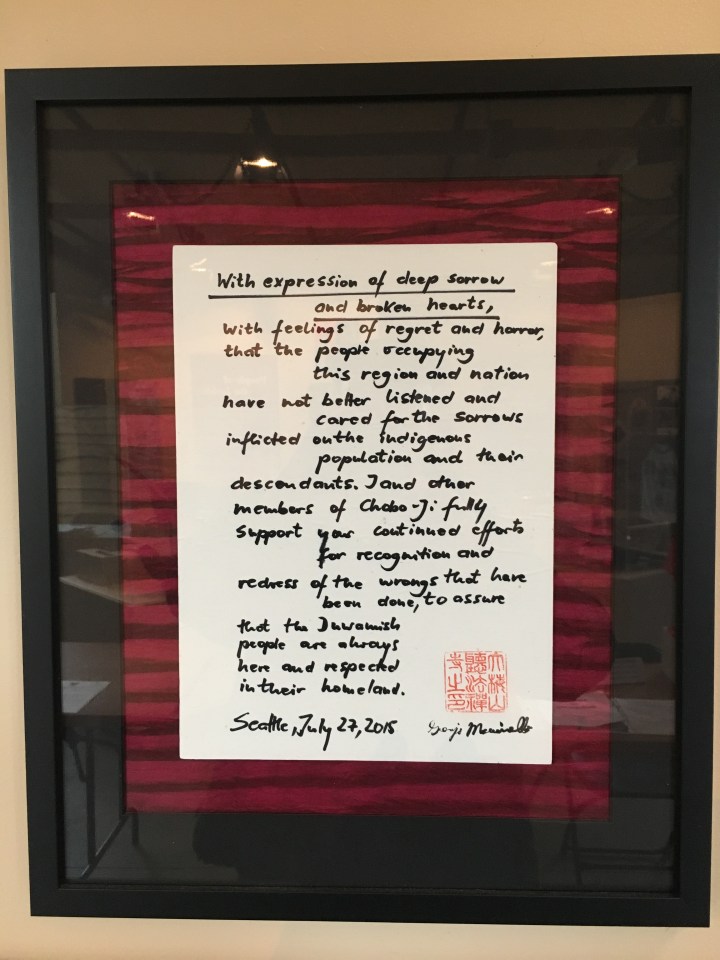 With expression of deep sorrow
and broken hearts,
with feelings of regret and horror,
that the people occupying
this region and nation
have not better listened and
cared for the sorrows
inflicted on the indigenous
population and their
descendants. I and other
members of Chobo-Ji fully
support your continued efforts
for recognition and
redress of the wrongs that have
been done, to assure
that the Duwamish
people are always
here and respected
in their homeland.
大梅山
聽法禪
寺之印
Seattle, July 27, 2015
Genjo Marinello